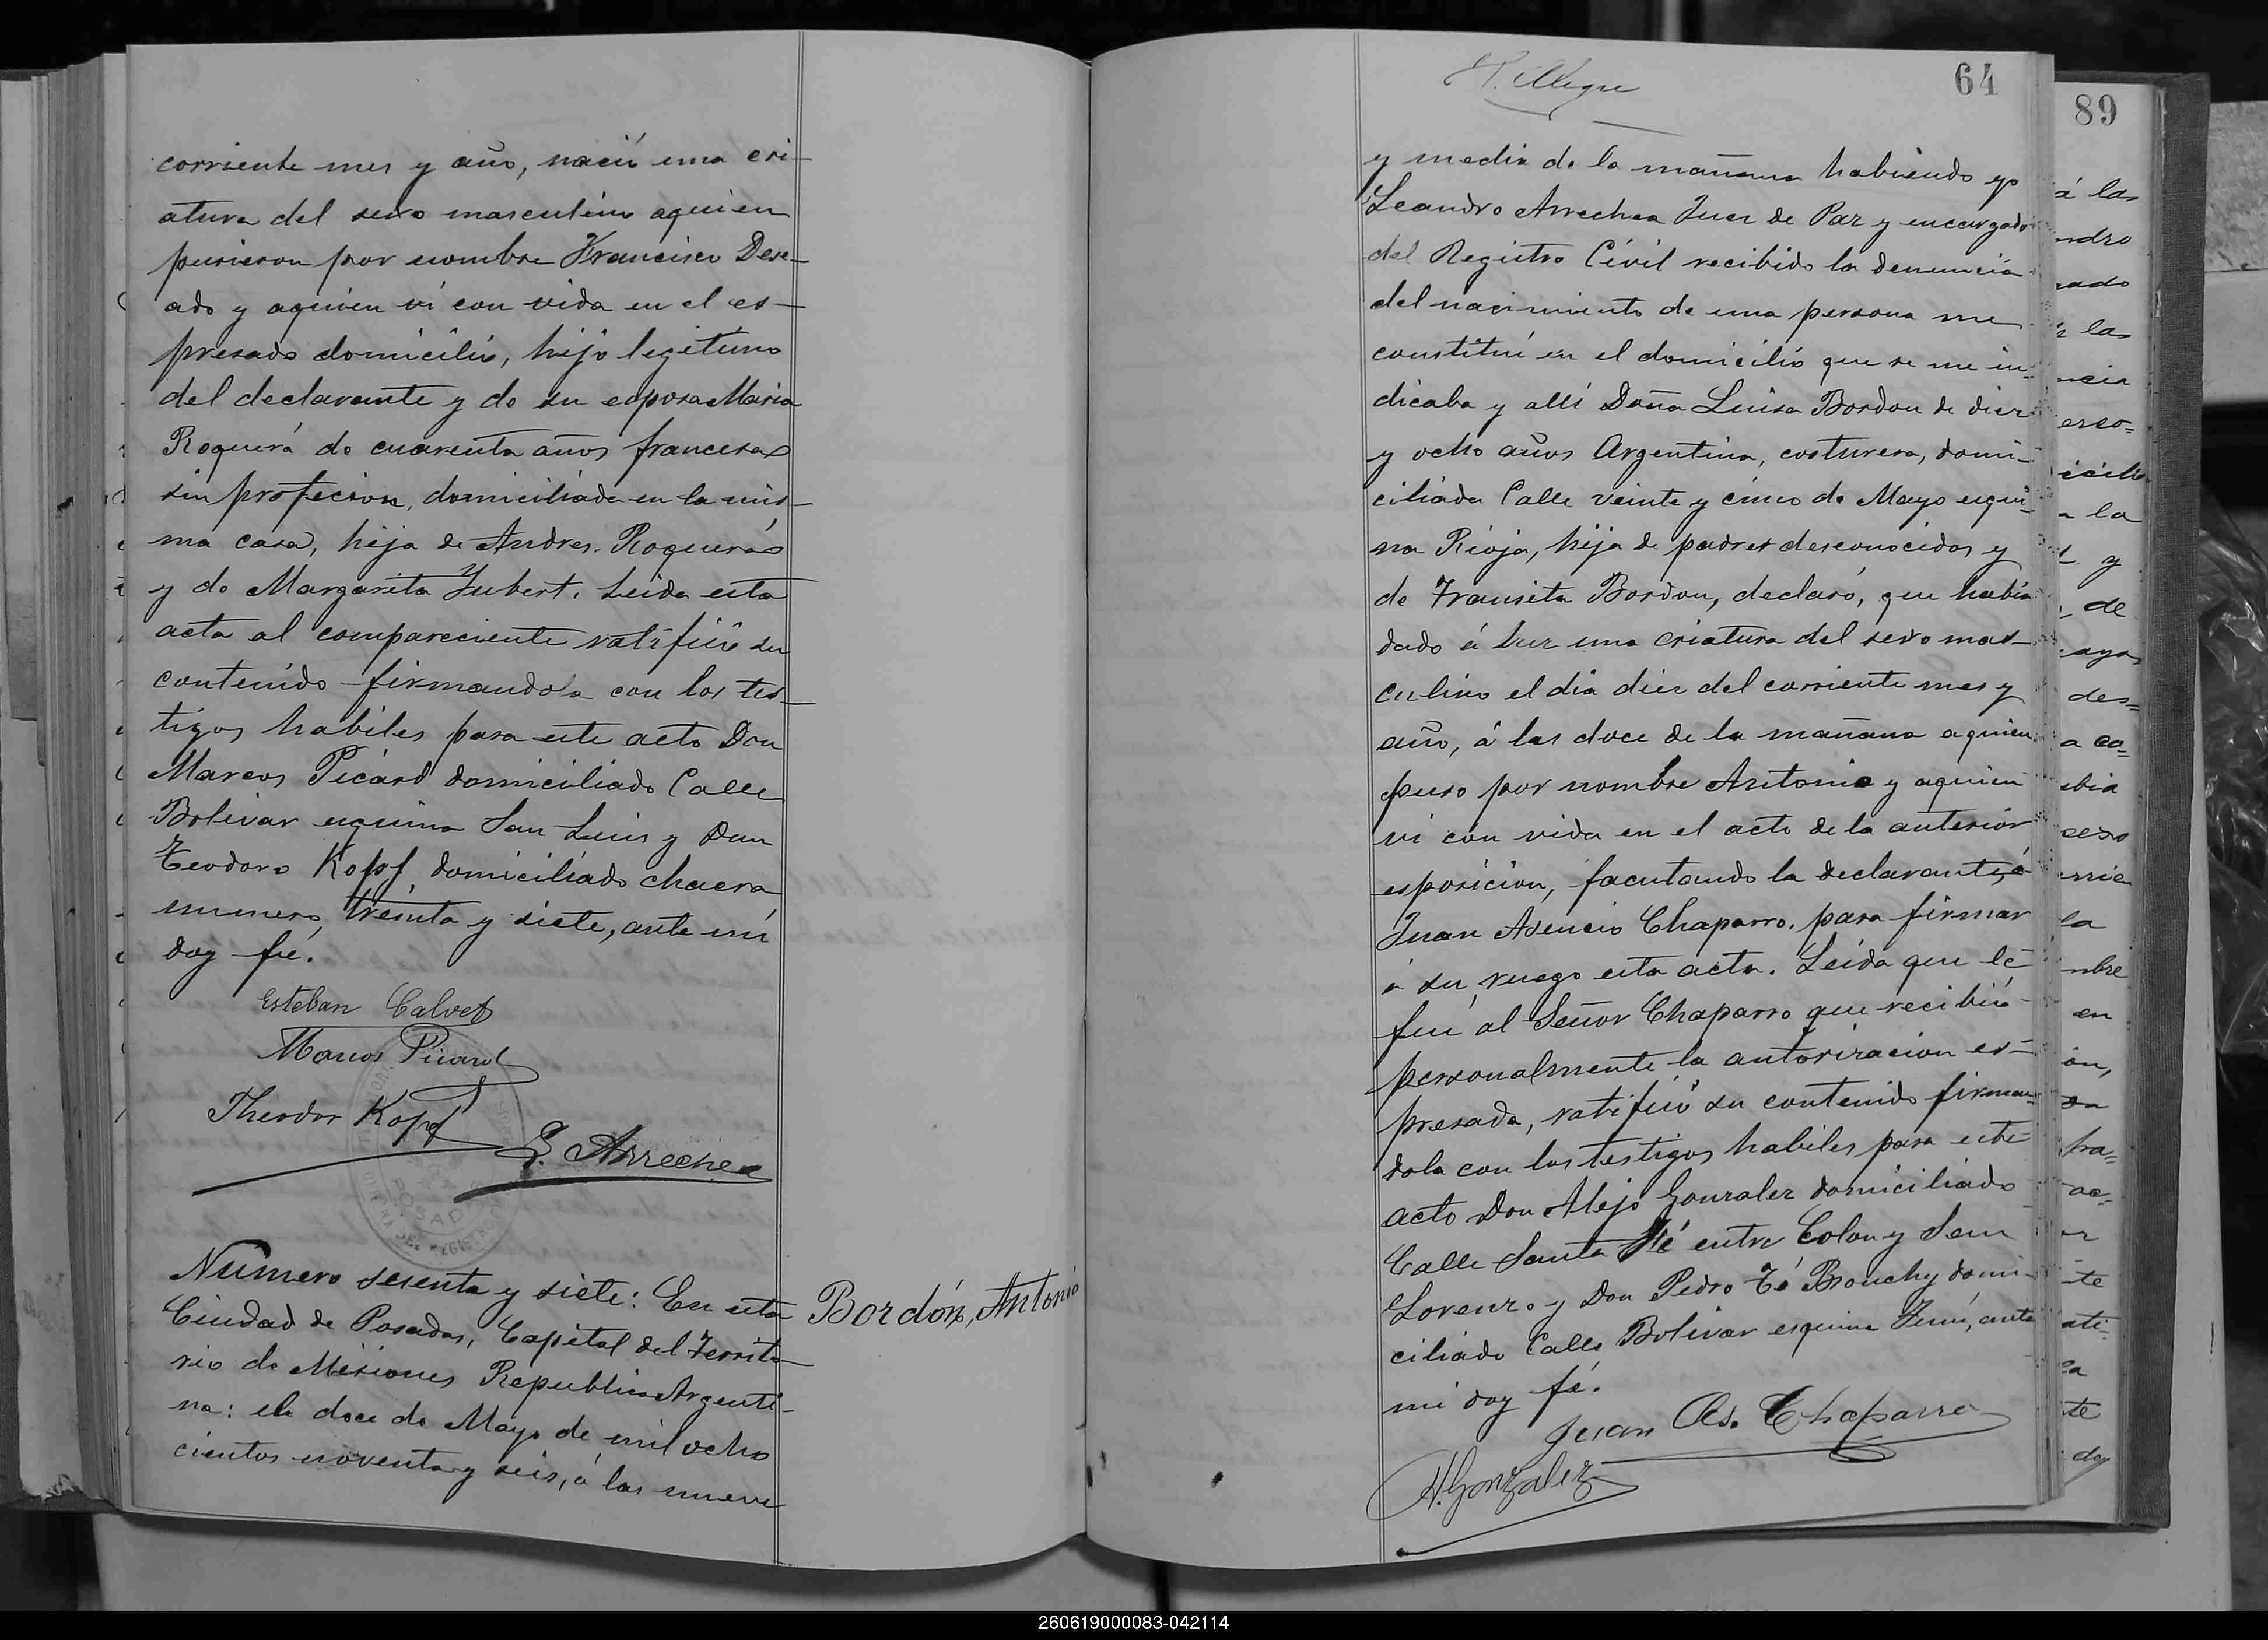 corriente mes y año, nació una cri-
atura del sexo masculino aquien
pusieron por nombre Francisco Dese-
ado y aquien ví con vida en el es-
presado domicilio, hijo legitimo
del declarante y de su esposa Maria
Roquerá de cuarenta años francesa
sin profecion, domiciliada en la mis-
ma casa, hija de Andres Roquerás
y de Margarita Jubert. Leida esta
acta al compareciente ratificó su
contenido firmandola con los tes-
tigos habiles para este acto Don
Marcos Picard domiciliado Calle
Bolivar esquina San Luis y Don
Teodoro Kopf, domiciliado chacra
numero, treinta y siete, ante mí
doy fé.
Esteban Calvet
Marcos Picard
Theodor Kopf
L. Arrechea
POSADAS
Numero sesenta y siete: En esta
Ciudad de Posadas, Capital del Territo-
rio de Misiones Republica Argenti-
na: el doce de Mayo de mil ocho
cientos noventa y seis, á las nueve
Bordón, Antonio
64
y media de la mañana habiendo yo
Leandro Arrechea Juez de Paz y encargado
del Registro Cívil recibido la denuncia
del nacimiento de una persona me
constituí en el domicilio que se me in-
dicaba y allí Doña Luisa Bordon de diez
y ocho años Argentina, costurera, domi-
ciliada Calle veinte y cinco de Mayo esqui-
na Rioja, hija de padres desconocidos y
de Transita Bordon, declaró, que había
dado á luz una criatura del sexo mas-
culino el día diez del corriente mes y
año, á las doce de la mañana aquien
puso por nombre Antonio y aquien
vi con vida en el acto de la anterior
esposicion, facutando la declarante, á
Juan Asencio Chaparro, para firmar
á su ruego esta acta. Leida que le
fué al Señor Chaparro que recibió
personalmente la autorizacion es-
presada, ratificó su contenido firman-
dola con los testigos habiles para este
acto Don Alejo Gonzalez domiciliado
Calle Santa Fé entre Colon y San
Lorenzo y Don Pedro Té Brouchy domi-
ciliado Calle Bolivar esquina Junin, ante
mi doy fé.
Juan As. Chaparro
A. Gonzalez
89
á las
ndro
rado
las
ncia
erso-
icilio
la
y
de
ayo
des-
a ca-
ebia
sexo
rrie
la
mbre
en
on,
ha-
ac-
te
ati-
la
te
doy
260619000083-042114